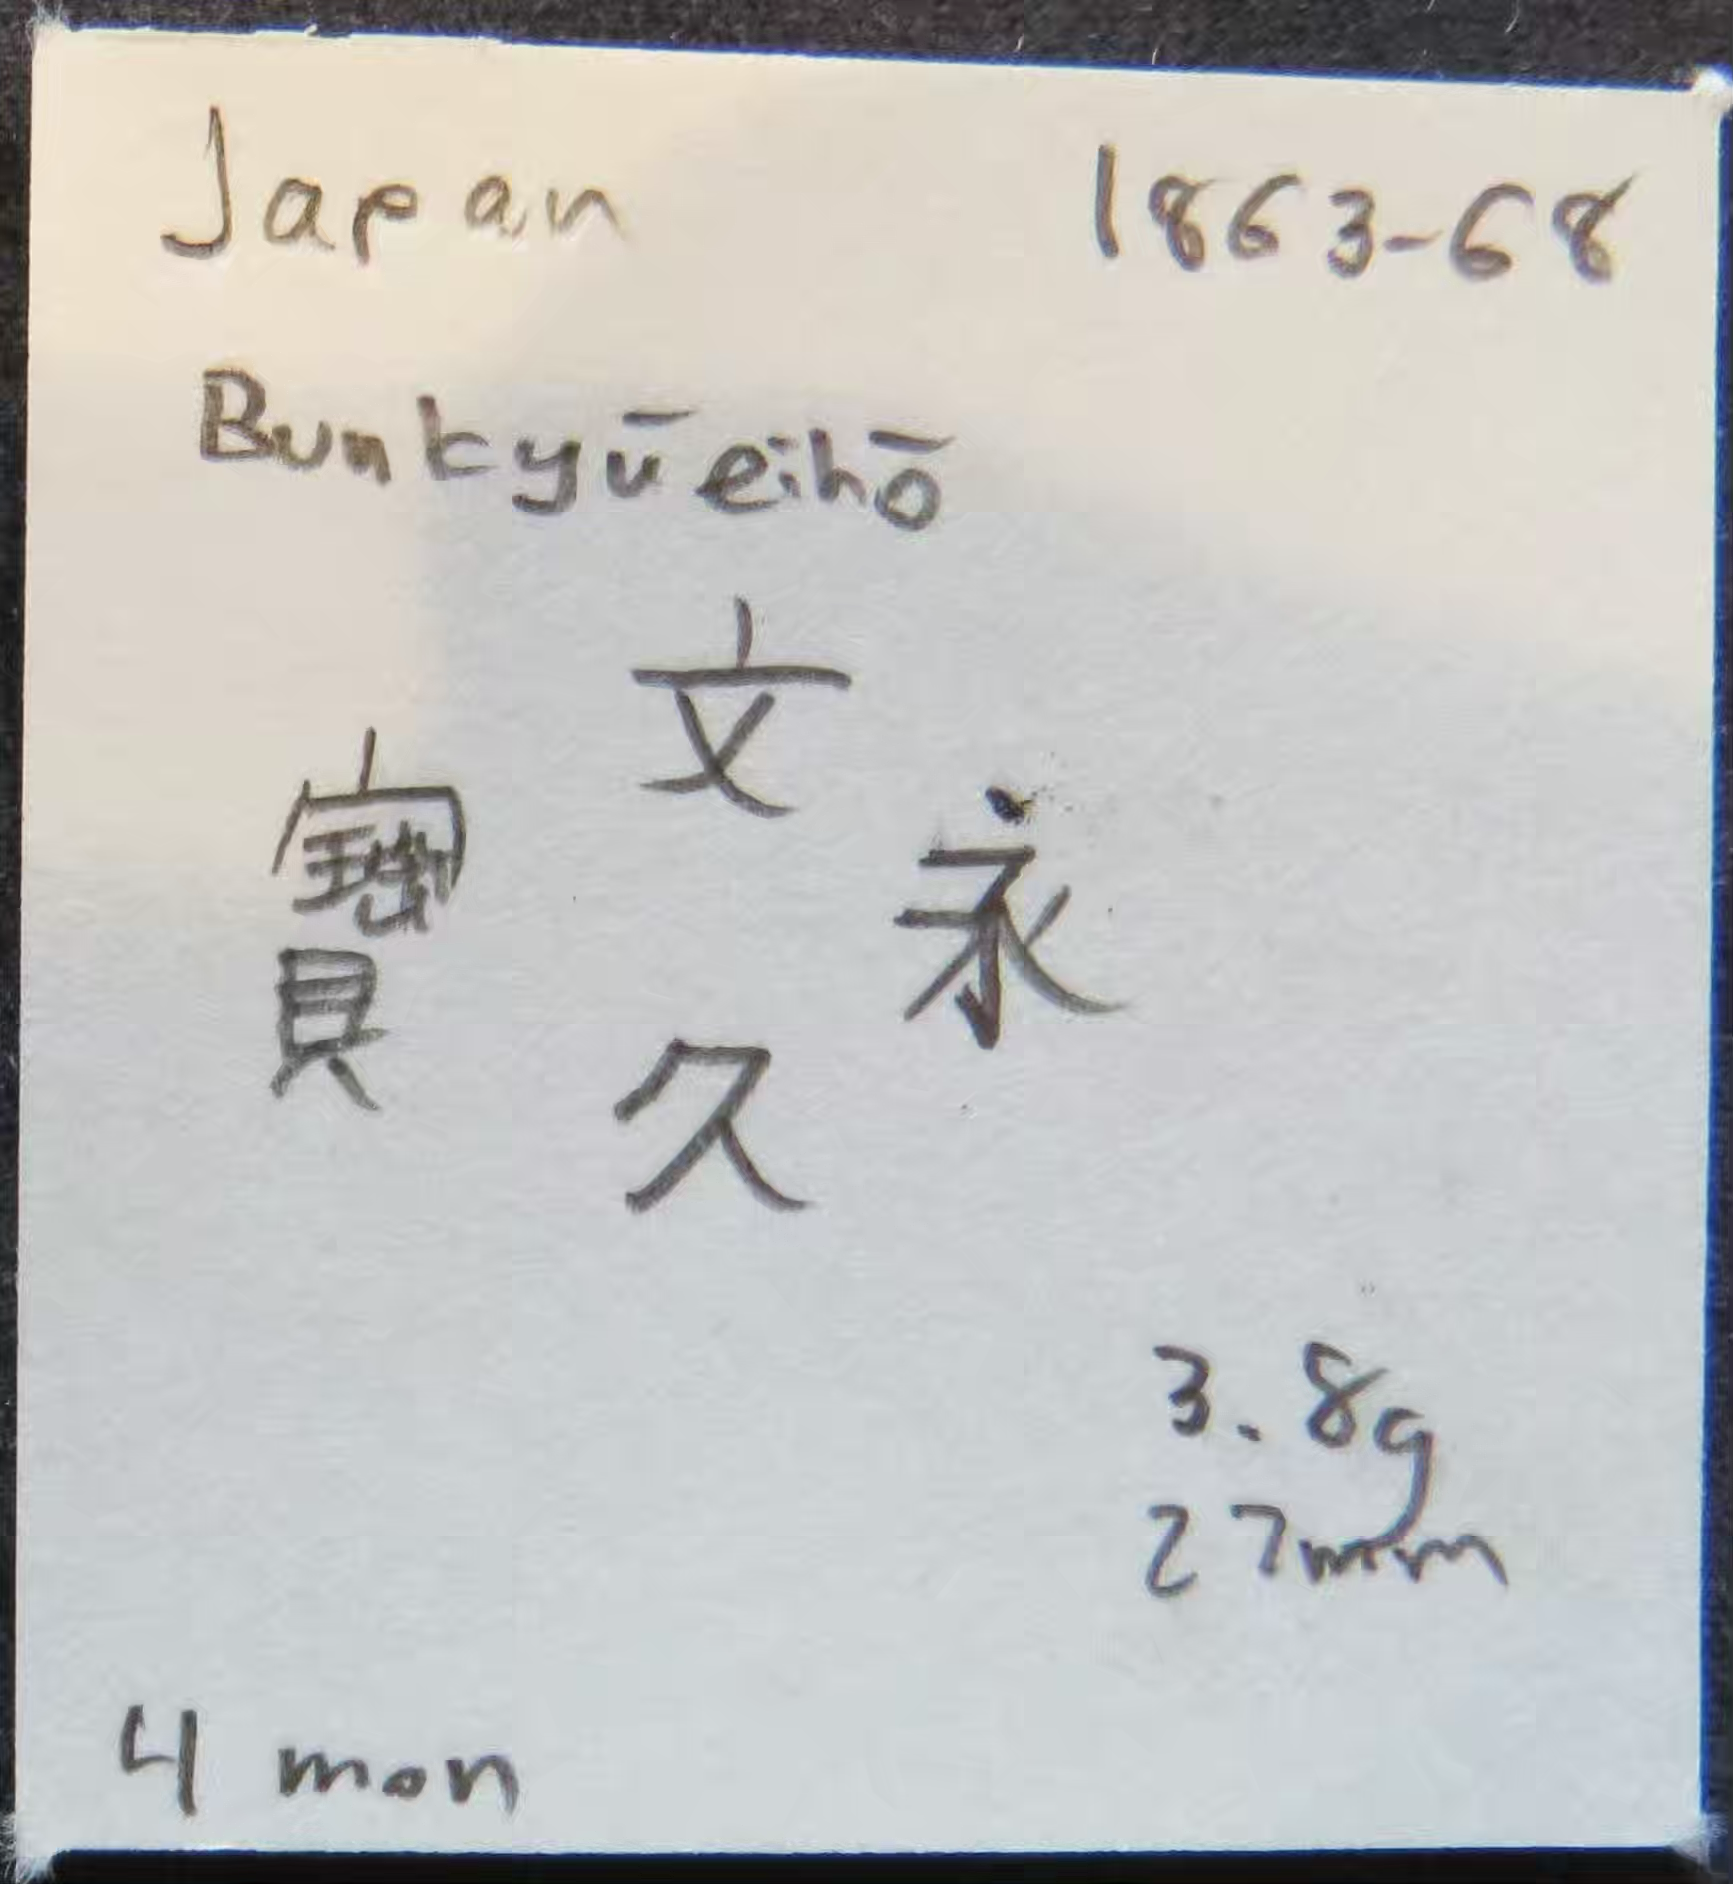 Japan 1863-68
Bunkyūeihō
文
寶 永
久
3.8g
27mm
4 mon